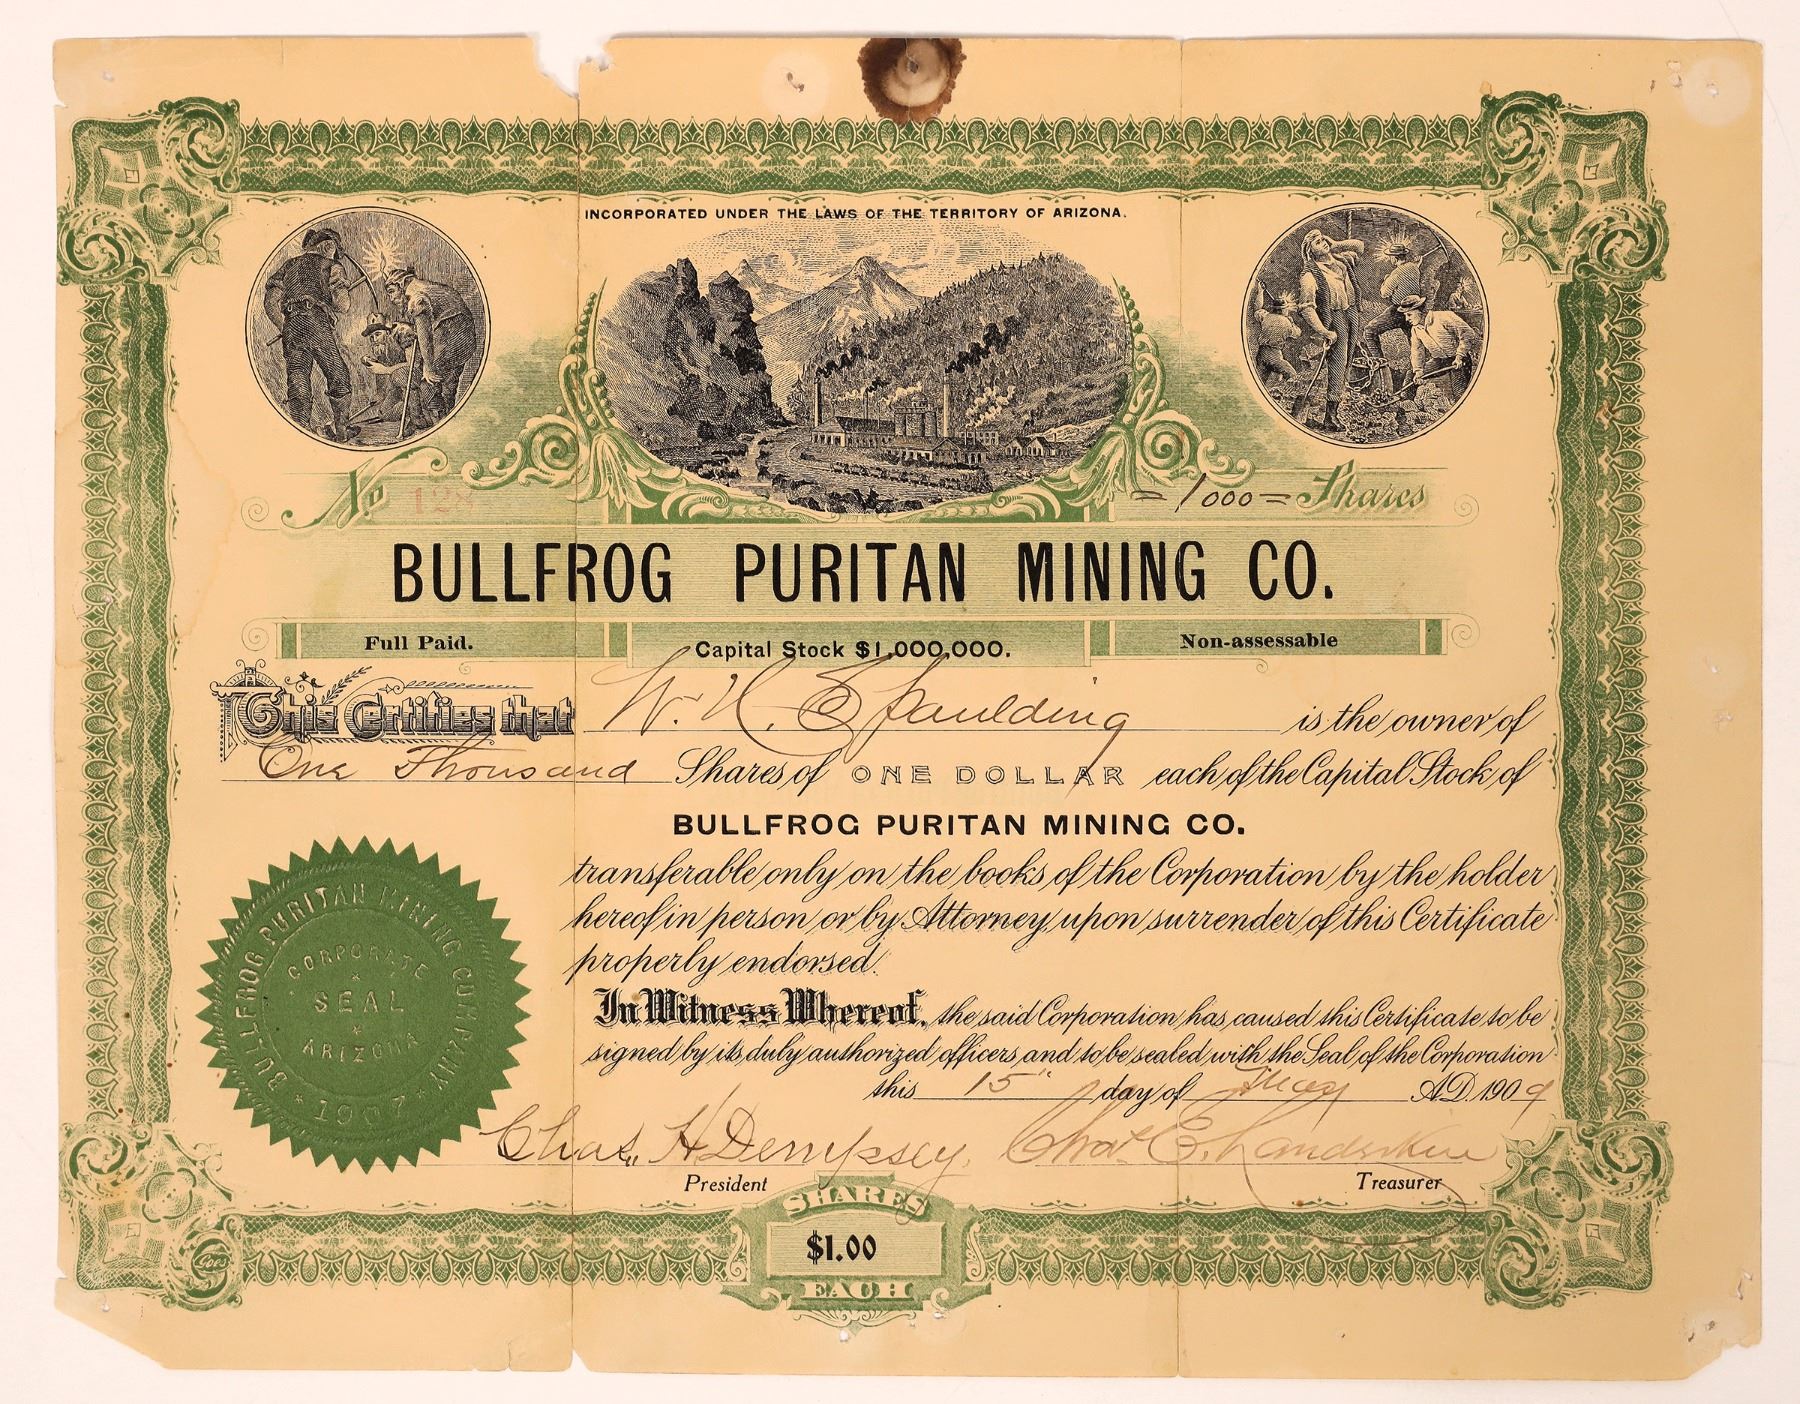 INCORPORATED UNDER THE LAWS OF THE TERRITORY OF ARIZONA.
No 128 =1000= Shares
BULLFROG PURITAN MINING CO.
Full Paid. Capital Stock $1,000,000. Non-assessable
This Certifies that W. H. Spaulding is the owner of
One Thousand Shares of ONE DOLLAR each of the Capital Stock of
BULLFROG PURITAN MINING CO.
transferable only on the books of the Corporation by the holder
hereof in person or by Attorney, upon surrender of this Certificate
properly endorsed.
In Witness Whereof, the said Corporation has caused this Certificate to be
signed by its duly authorized officers and to be sealed with the Seal of the Corporation
this 15" day of May A.D. 1909
BULLFROG PURITAN MINING COMPANY
CORPORATE
SEAL
ARIZONA
* 1907 *
Chas. H Dempsey. Chas. E.
President Treasurer
SHARES
$1.00
EACH
Goes